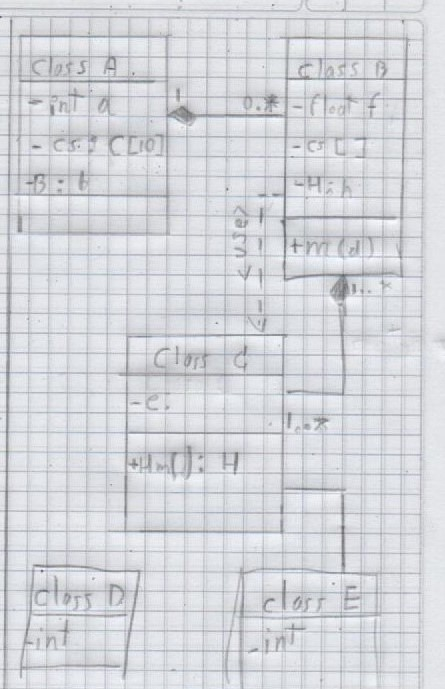 class A
- int a
- cs : C[10]
- B : b
1
0..*
class B
- float f
- cs [ ]
- H : h
+ m (d)
1..*
< use >
Class C
- e.
1..*
+ Hm() : H
class D
- int
class E
- int